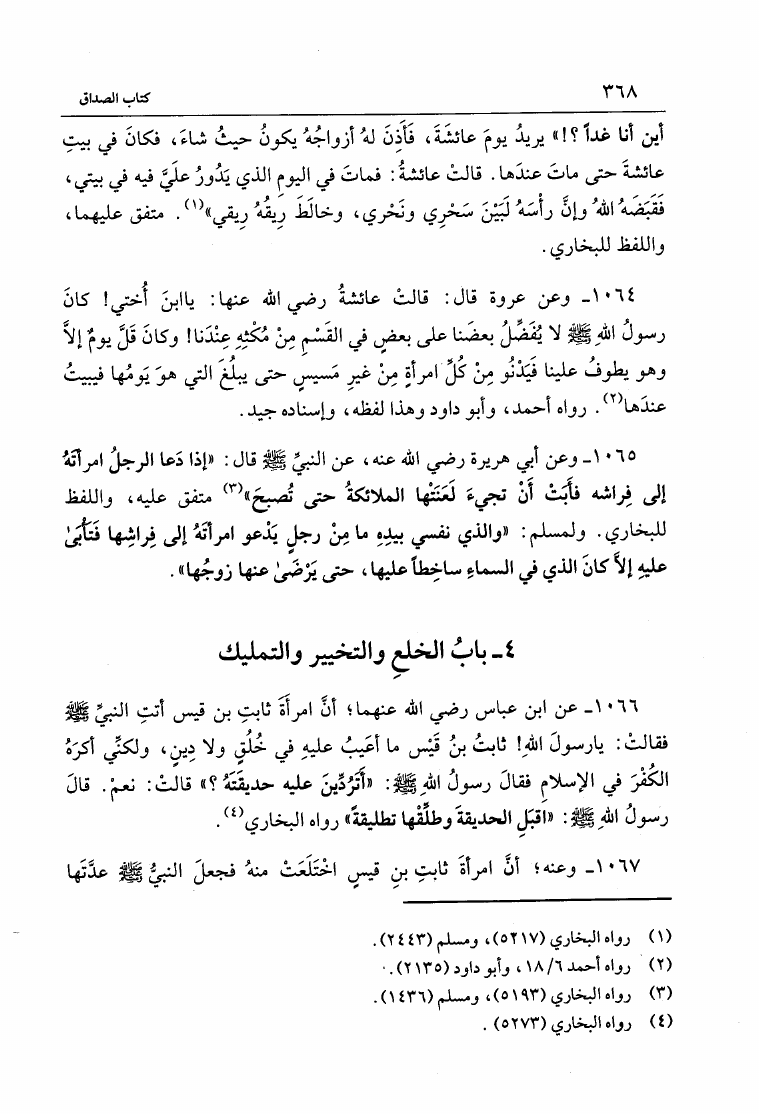 ٣٦٨
كتاب الصداق
أين أنا غداً؟!» يريدُ يومَ عائشَةَ، فَأَذِنَ لهُ أزواجُهُ يكونُ حيثُ شاءَ، فكانَ في بيتِ
عائشةَ حتى ماتَ عندَها. قالتْ عائشةُ: فماتَ في اليومِ الذي يَدُورُ علَيَّ فيه في بيتي،
فَقَبَضَهُ اللهُ وإنَّ رأْسَهُ لَبَيْنَ سَحْرِي ونَحْري، وخالَطَ رِيقُهُ ريقي»(١). متفق عليهما،
واللفظ للبخاري.
١٠٦٤ـ وعن عروة قال: قالتْ عائشةُ رضي الله عنها: ياابنَ أُختي! كانَ
رسولُ اللهِ ﷺ لا يُفَضِّلُ بعضَنا على بعضٍ في القَسْمِ مِنْ مُكْثِهِ عِنْدَنا! وكانَ قَلَّ يومٌ إلاَّ
وهو يطوفُ علينا فَيَدْنُو مِنْ كُلِّ امرأةٍ مِنْ غيرِ مَسيسٍ حتى يبلُغَ التي هوَ يَومُها فيبيتُ
عندَها(٢). رواه أحمد، وأبو داود وهذا لفظه، وإسناده جيد.
١٠٦٥ـ وعن أبي هريرة رضي الله عنه، عن النبيِّ ﷺ قال: «إذا دَعا الرجلُ امرأتَهُ
إلى فِراشه فأَبَتْ أَنْ تجيءَ لَعَنَتْها الملائكةُ حتى تُصبحَ»(٣) متفق عليه، واللفظ
للبخاري. ولمسلم: «والذي نفسي بيدِهِ ما مِنْ رجلٍ يَدْعو امرأتَهُ إلى فِراشِها فَتَأْبَىٰ
عليهِ إلاَّ كانَ الذي في السماءِ ساخِطاً عليها، حتى يَرْضَىٰ عنها زوجُها».
٤ـ بابُ الخلعِ والتخيير والتمليك
١٠٦٦ـ عن ابن عباس رضي الله عنهما؛ أنَّ امرأَةَ ثابتِ بن قيس أتتِ النبيَّ ﷺ
فقالتْ: يارسولَ اللهِ! ثابتُ بنُ قَيْس ما أعيبُ عليهِ في خُلُقٍ ولا دِينٍ، ولكنِّي أكرَهُ
الكُفْرَ في الإسلامِ فقالَ رسولُ اللهِ ﷺ: «أَتَرُدِّينَ عليه حديقَتَهُ؟» قالتْ: نعمْ. قالَ
رسولُ اللهِ ﷺ: «اقبَلِ الحديقةَ وطلِّقْها تطليقةً» رواه البخاري(٤).
١٠٦٧ـ وعنه؛ أنَّ امرأةَ ثابتِ بنِ قيسٍ اخْتَلَعَتْ منهُ فجعلَ النبيُّ ﷺ عدَّتَها
(١) رواه البخاري (٥٢١٧)، ومسلم (٢٤٤٣).
(٢) رواه أحمد ٦/ ١٨، وأبو داود (٢١٣٥).
(٣) رواه البخاري (٥١٩٣)، ومسلم (١٤٣٦).
(٤) رواه البخاري (٥٢٧٣).